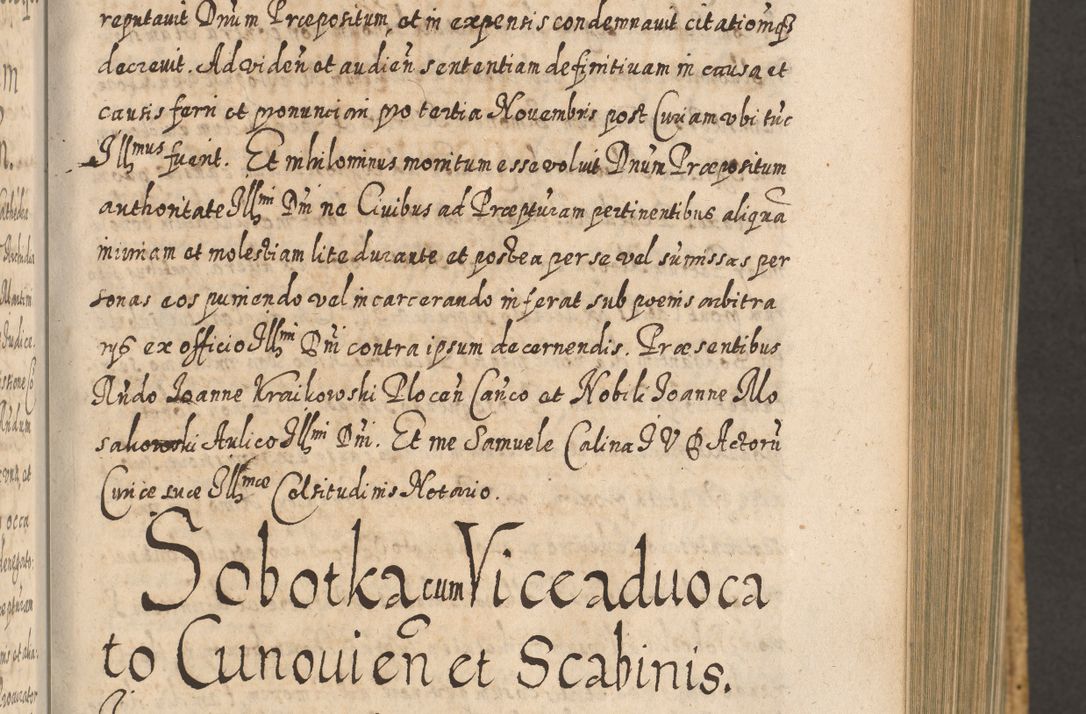 reputauit Dnum Præpositum, et in expensis condemnauit citationemq3
decreuit. Ad viden et audien sententiam definitiuam in causa et
causis ferri et pronunciari pro tertia Novembris post Curiam vbi tuc
Illmus fuerit. Et nihilominus monitum esse voluit Dnum Præpositum
authoritate Illmi Dni ne Ciuibus ad Præpturam pertinentibus aliqua
iniuriam et molestiam lite durante et postea per se vel sumissas per
sonas eos puniendo vel incarcerando inferat sub poenis arbitra
rys ex officio Illmi Dni contra ipsum decernendis. Præsentibus
Rndo Joanne Kraikowski Plocen Canco et Nobili Joanne Mlo
Aulico Illmi Dni. Et me Samuele Calina I V D Actoru
Curiæ suæ Illmæ Celsitudinis Notario.
Sobotka cum Viceaduoca
to Cunouien et Scabinis.